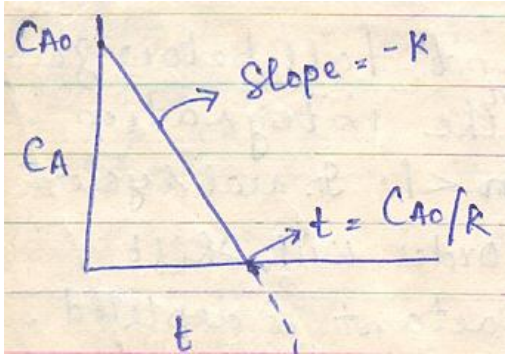 CA0
Slope = -K
CA
t = CA0/K
t